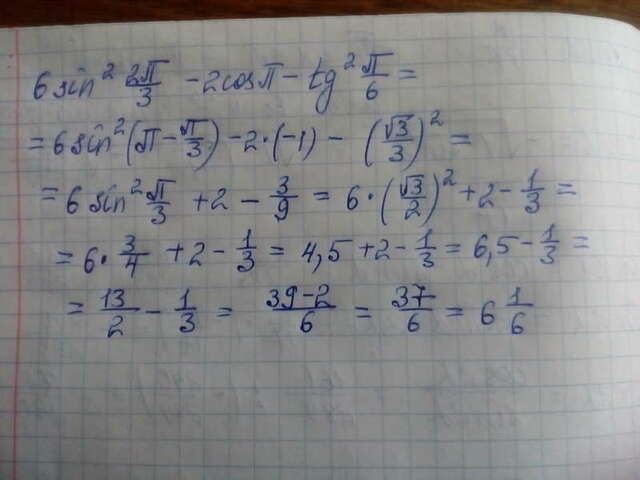 6 sin² 2π/3 - 2cosπ - tg² π/6 =
= 6 sin² (π - π/3) - 2·(-1) - (√3/3)² =
= 6 sin² π/3 + 2 - 3/9 = 6·(√3/2)² + 2 - 1/3 =
= 6·3/4 + 2 - 1/3 = 4,5 + 2 - 1/3 = 6,5 - 1/3 =
= 13/2 - 1/3 = 39-2/6 = 37/6 = 6 1/6